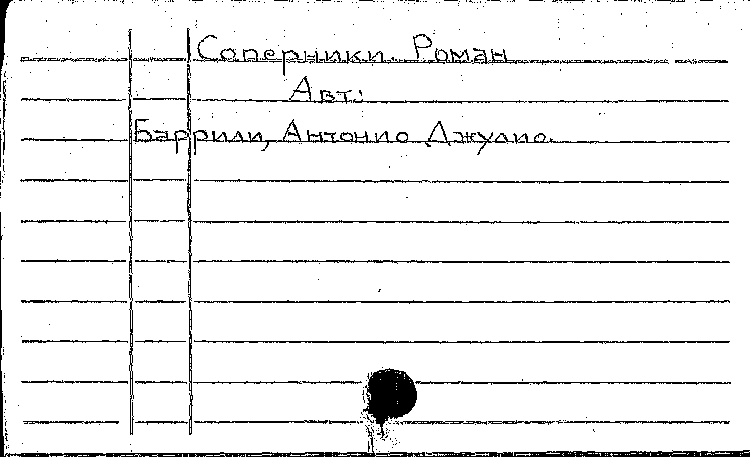 Соперники. Роман
Авт.:
Баррили, Антонио Джулио.